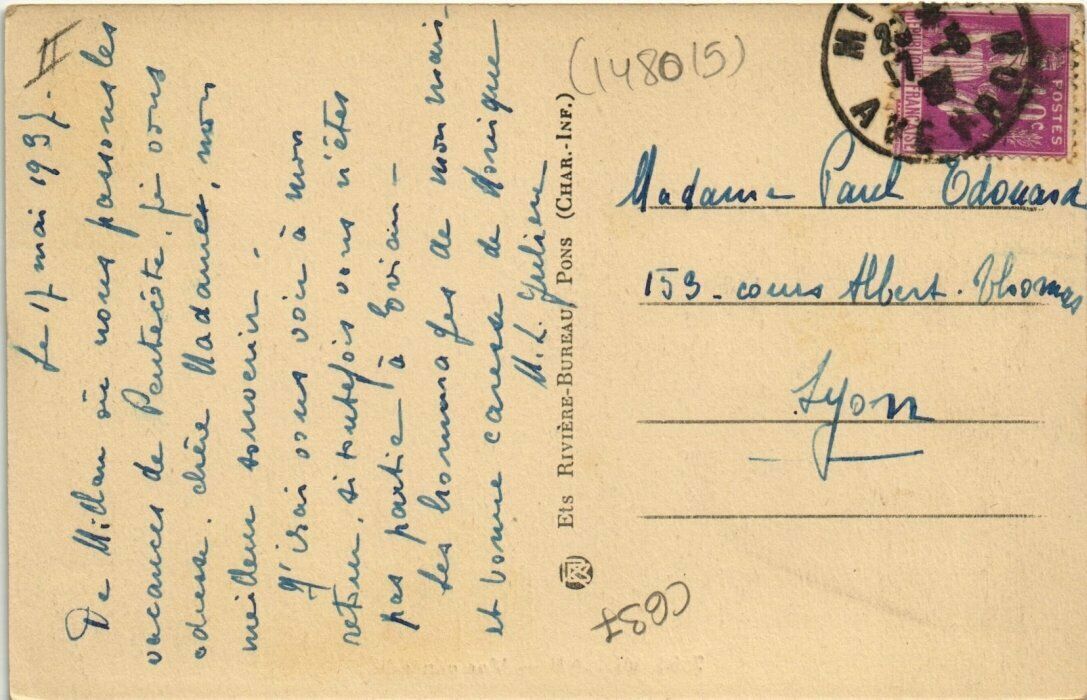 Le 17 mai 1937.
De Millau où nous passons les
vacances de Pentecôte, je vous
adresse, chère Madame, mon
meilleur souvenir.
J'irai vous voir à mon
retour, si toutefois vous n'êtes
pas partie à Evian -
Les hommages de mon mari
et bonne caresse de Monique
M. L. Julien
II
(148015)
Ets RIVIÈRE-BUREAU, PONS (CHAR.-INF.)
CG37
POSTES
40c
FRANÇAISE
AVEYRON
Madame Paul Edouard
153 - cours Albert-Thomas
Lyon